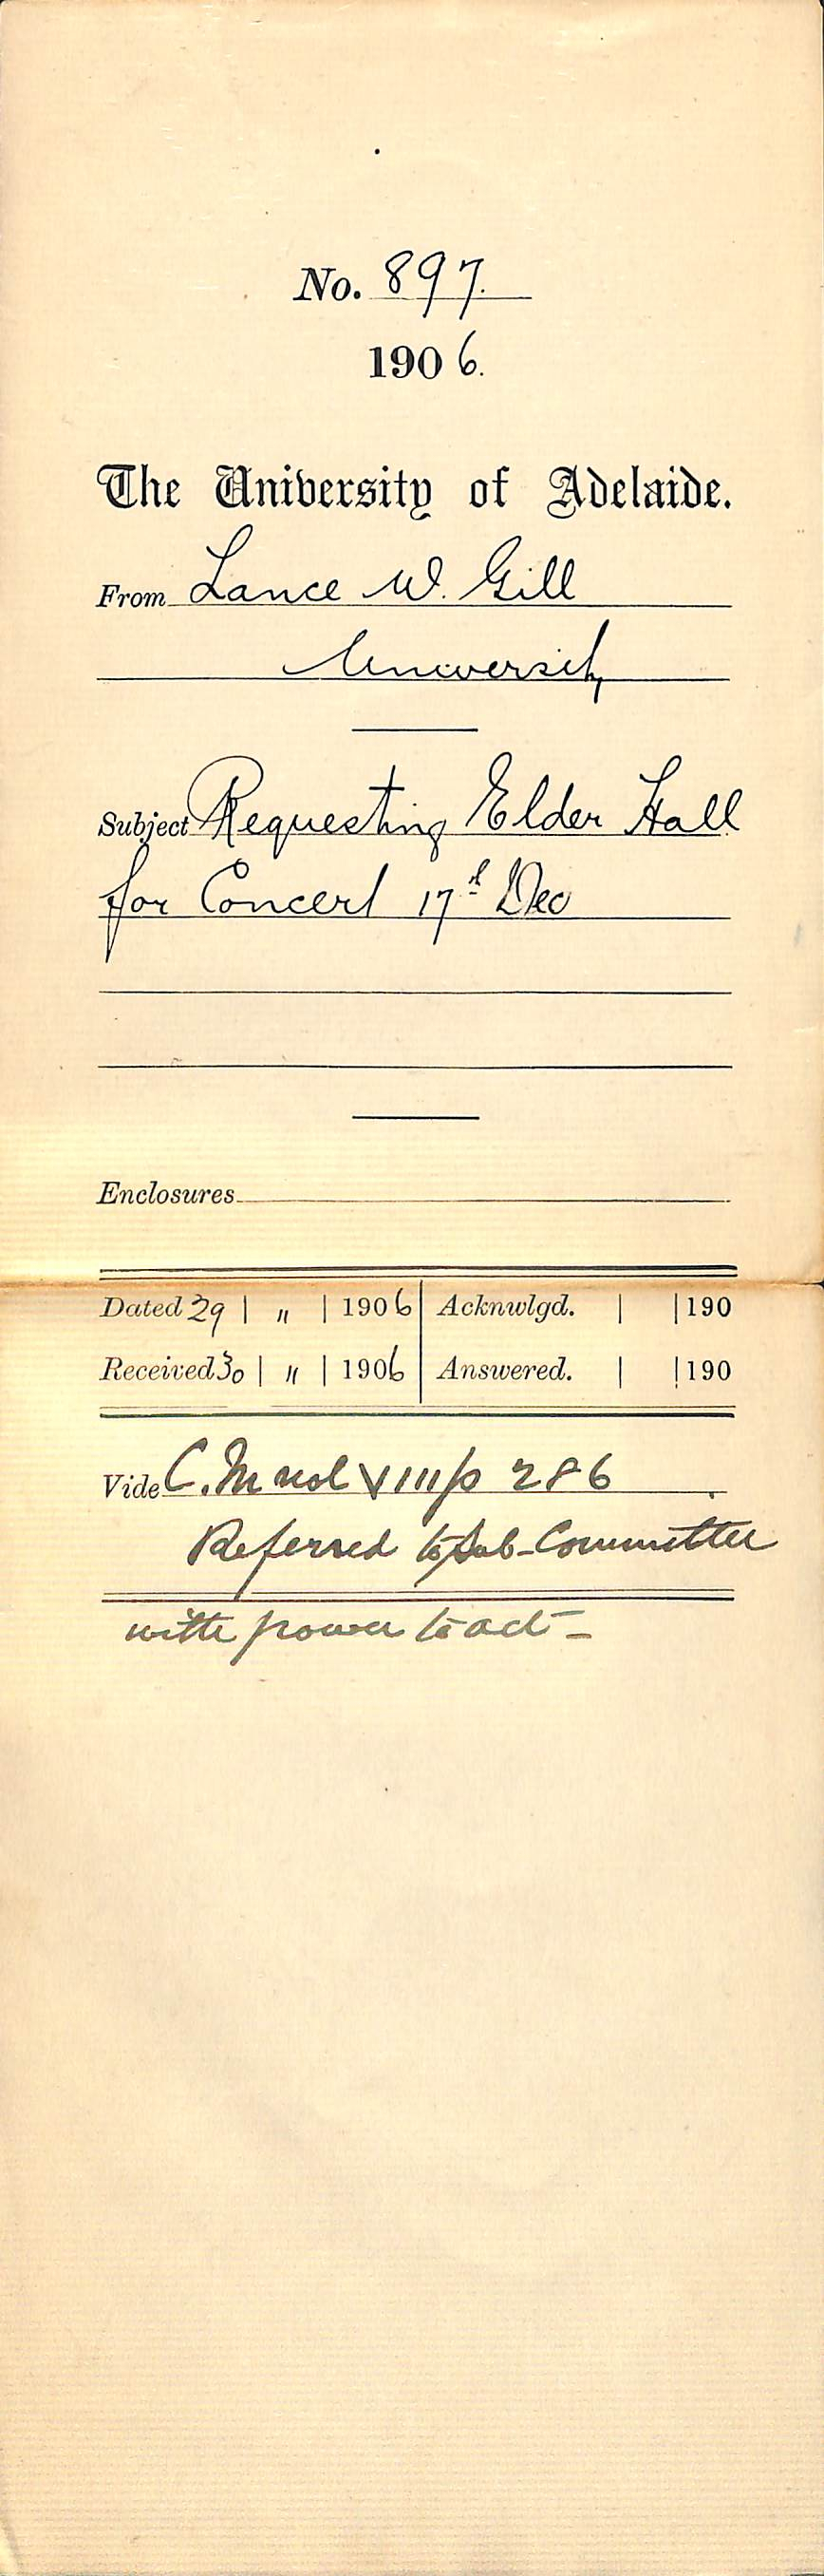 No. 897.
1906.
The University of Adelaide.
From Lance W. Gill
University
Subject Requesting Elder Hall
for Concert 17th Dec
Enclosures
Dated 29 | " | 1906 | Acknwlgd. | | 190
Received 30 | " | 1906 | Answered. | | 190
Vide C.M vol VIII p 286
Referred to Sub-Committee
with power to act -